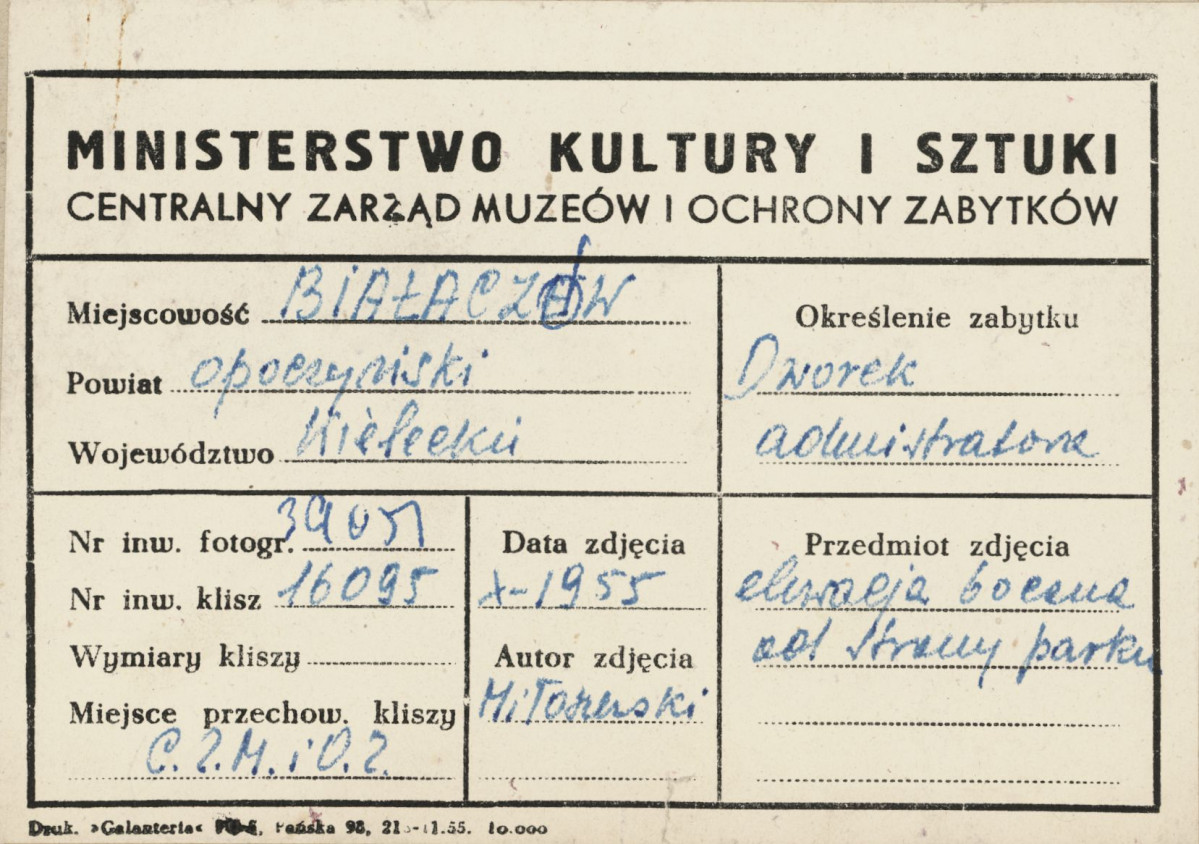 MINISTERSTWO KULTURY I SZTUKI
CENTRALNY ZARZĄD MUZEÓW I OCHRONY ZABYTKÓW
Miejscowość BIAŁACZÓW
Powiat opoczyński
Województwo Kieleckie
Określenie zabytku
Dworek
administratora
Nr inw. fotogr. 39051
Nr inw. klisz 16095
Wymiary kliszy
Miejsce przechow. kliszy
C.Z.M. i O.Z.
Data zdjęcia
X-1955
Autor zdjęcia
Miłoszewski
Przedmiot zdjęcia
elewacja boczna
od strony parku
Druk. »Galanteria« Pańska 98, 55. 10.000